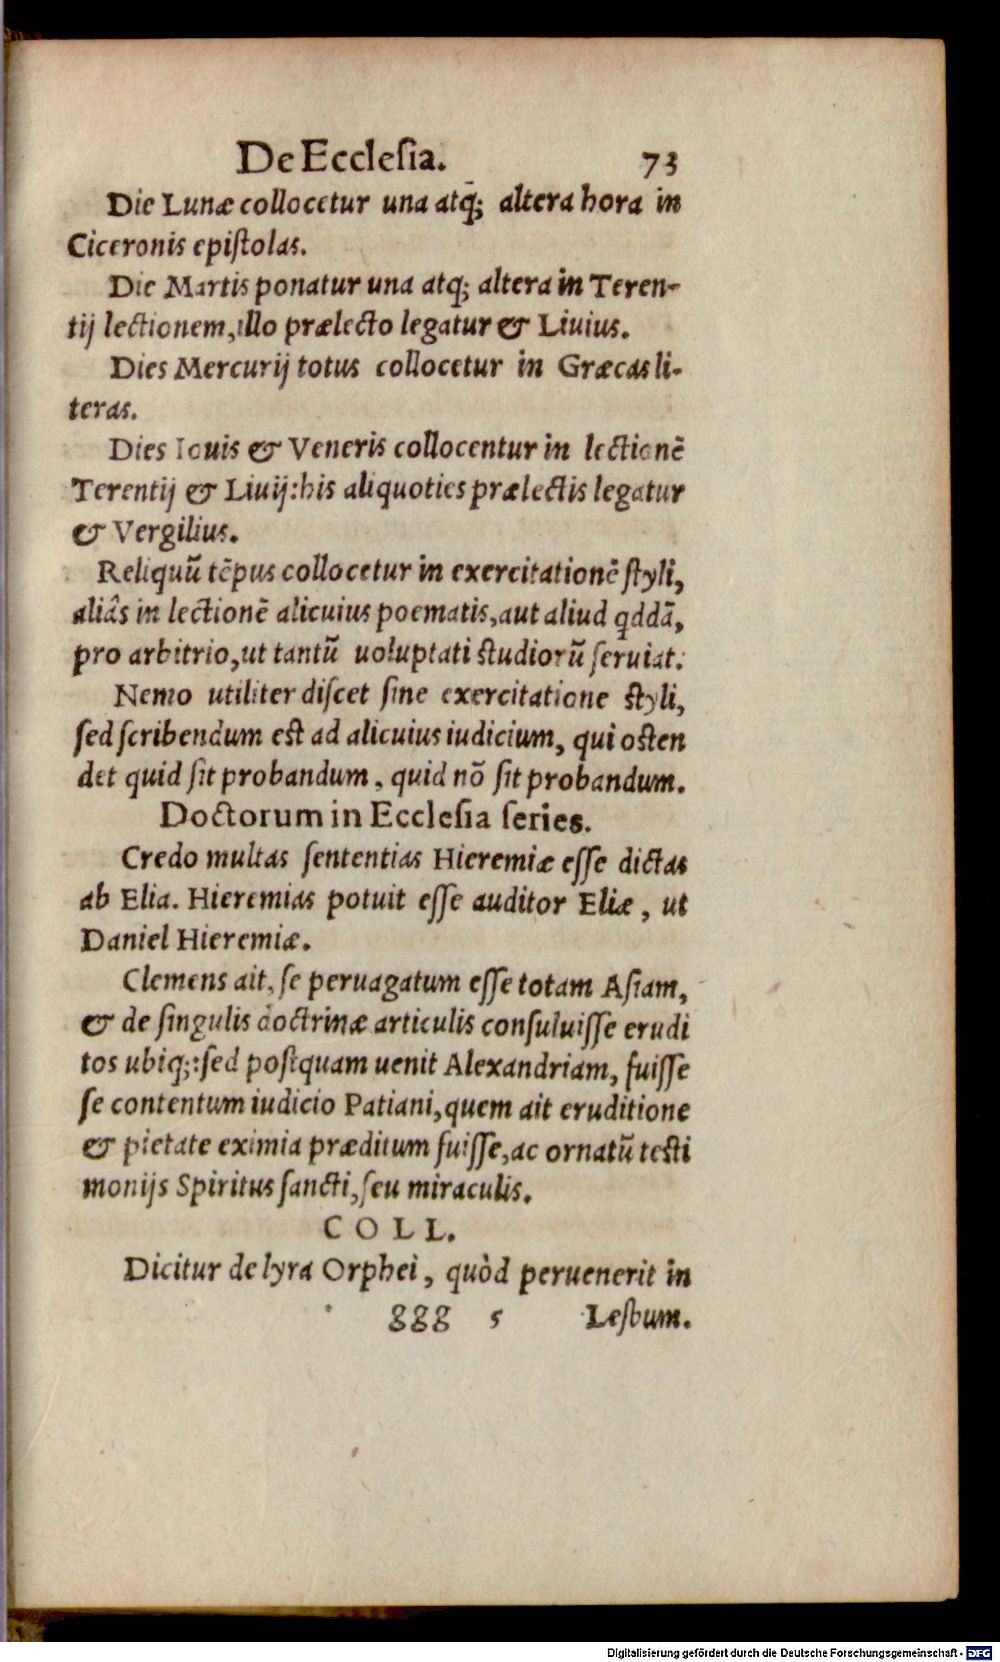 De Ecclesia. 73
Die Lunæ collocetur una atq̃; altera hora in
Ciceronis epistolas.
Die Martis ponatur una atq; altera in Teren-
tij lectionem, illo prælecto legatur & Liuius.
Dies Mercurij totus collocetur in Græcas li-
teras.
Dies Iouis & Veneris collocentur in lectionē
Terentij & Liuij: his aliquoties prælectis legatur
& Vergilius.
Reliquū tēpus collocetur in exercitationē styli,
aliâs in lectionē alicuius poematis, aut aliud qddā,
pro arbitrio, ut tantū uoluptati studiorū seruiat.
Nemo utiliter discet sine exercitatione styli,
sed scribendum est ad alicuius iudicium, qui osten
det quid sit probandum, quid nō sit probandum.
Doctorum in Ecclesia series.
Credo multas sententias Hieremiæ esse dictas
ab Elia. Hieremias potuit esse auditor Eliæ, ut
Daniel Hieremiæ.
Clemens ait, se peruagatum esse totam Asiam,
& de singulis doctrinæ articulis consuluisse erudi
tos ubiq;: sed postquam uenit Alexandriam, fuisse
se contentum iudicio Patiani, quem ait eruditione
& pietate eximia præditum fuisse, ac ornatū testi
monijs Spiritus sancti, seu miraculis.
COLL.
Dicitur de lyra Orphei, quòd peruenerit in
ggg 5 Lesbum.
Digitalisierung gefördert durch die Deutsche Forschungsgemeinschaft - DFG